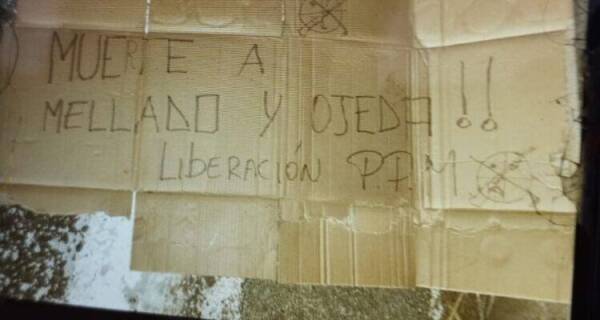 MUERTE A
MELLADO Y OJEDA!!
LIBERACIÓN P.P.M